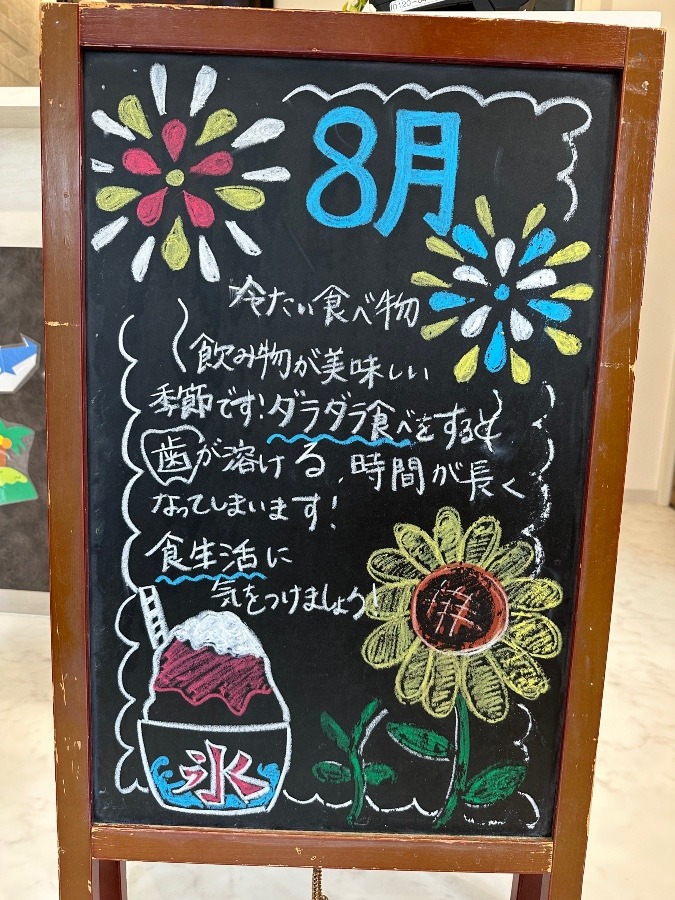 8月
冷たい食べ物
飲み物が美味しい
季節です!ダラダラ食べをすると
歯が溶ける、時間が長く
なってしまいます!
食生活に
気をつけましょう!
氷